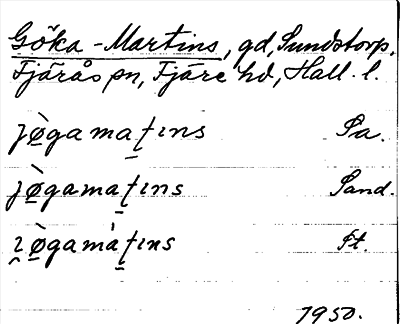 Göka-Martins, gd, Sundstorp,
Fjärås sn, Fjäre hd, Hall. l.
jø̠̀gama̠ʈɪns Sa.
jø̠̀gamaʈ̠ɪns Sand.
ɪ̯ø̠̀gamàʈ̠ɪns St.
1950.